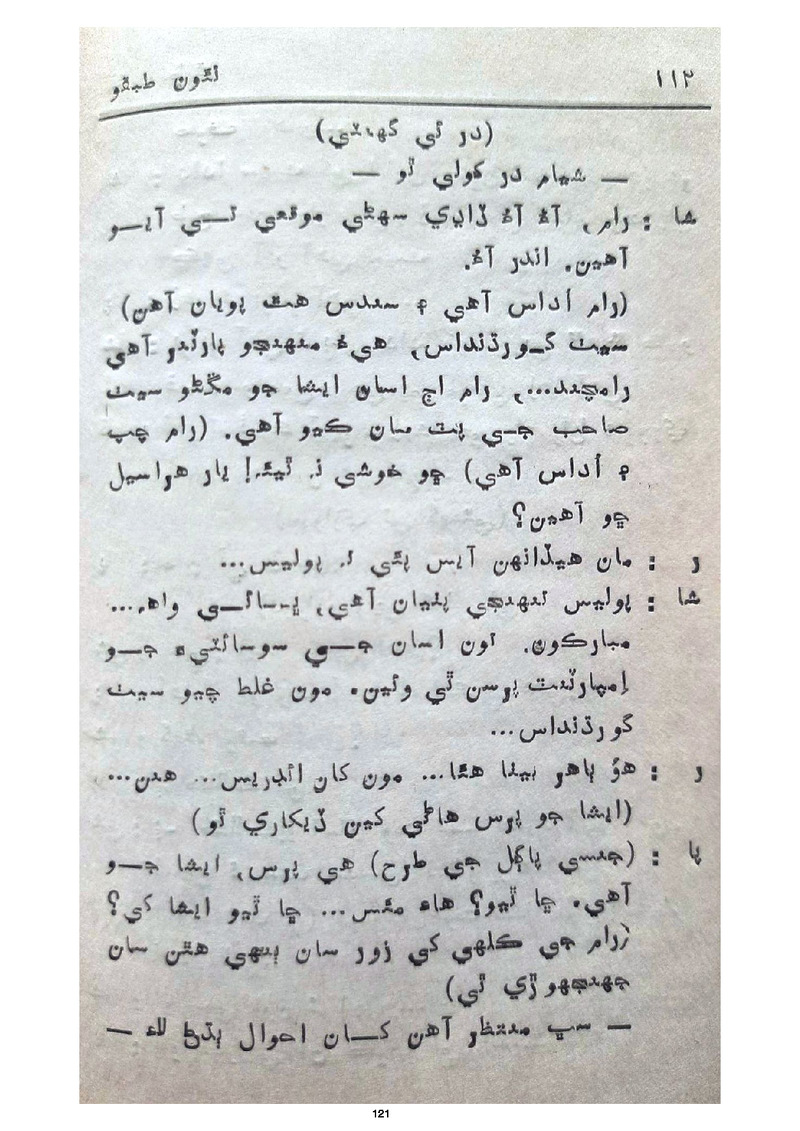 ١١٢ نئون طبقو
(در تي گهنٽي)
— شيام در کولي ٿو —
شا : رام، آءُ آءُ ڏاڍي سهڻي موقعي تــي آيــو
آهين. اندر آءُ.
(رام اُداس آهي ۽ سندس هٿ پويان آهن)
سيٺ گــورڌنداس، هيءُ منهنجو پارٽنر آهي
رامچند...، رام اڄ اسان ايشا جو مڱڻو سيٺ
صاحب جــي پٽ سان ڪيو آهي. (رام چپ
۽ اُداس آهي) ڇو خوشي نه ٿيئه! يار هراسيل
ڇو آهين؟
ر : مان هيڏانهن آيس پئي ته پوليس...
شا : پوليس تنهنجي پٺيان آهي، ڀــائــي واهه...
مبارڪون. تون اسان جــي سوسائٽيءَ جــو
اِمپارٽنٽ پرسن ٿي وئين. مون غلط چيو سيٺ
گورڌنداس...
ر : هوُ ٻاهر بيٺا هئا... مون کان ائڊريس... هنن...
(ايشا جو پرس هاڻي کين ڏيکاري ٿو)
پا : (جنسي پاڳل جي طرح) هي پرس، ايشا جــو
آهي. ڇا ٿيو؟ هاءِ مئس... ڇا ٿيو ايشا کي؟
(رام جي ڪلهي کي زور سان ٻنهي هٿن سان
جهنجهوڙي ٿي)
— سڀ منتظر آهن کــان احوال ٻڌڻ لاءِ —
121